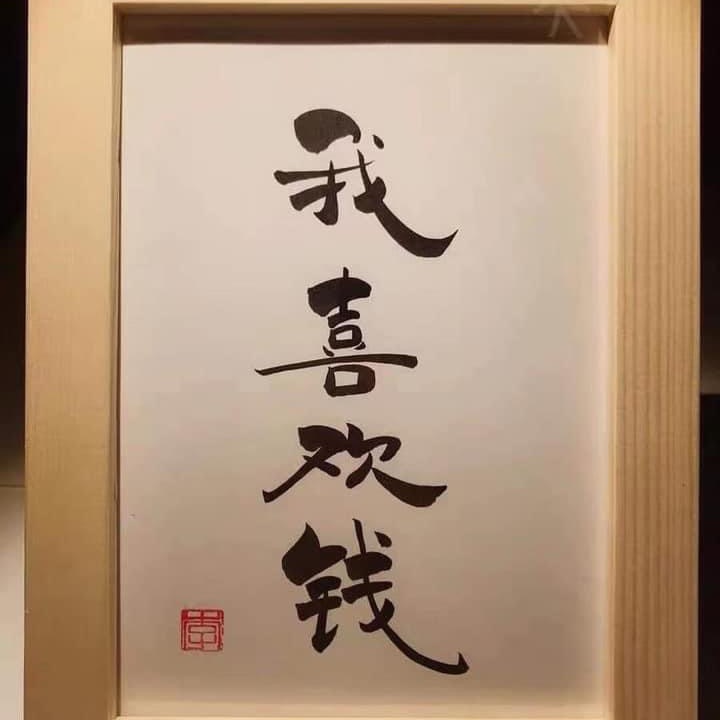 我喜欢钱